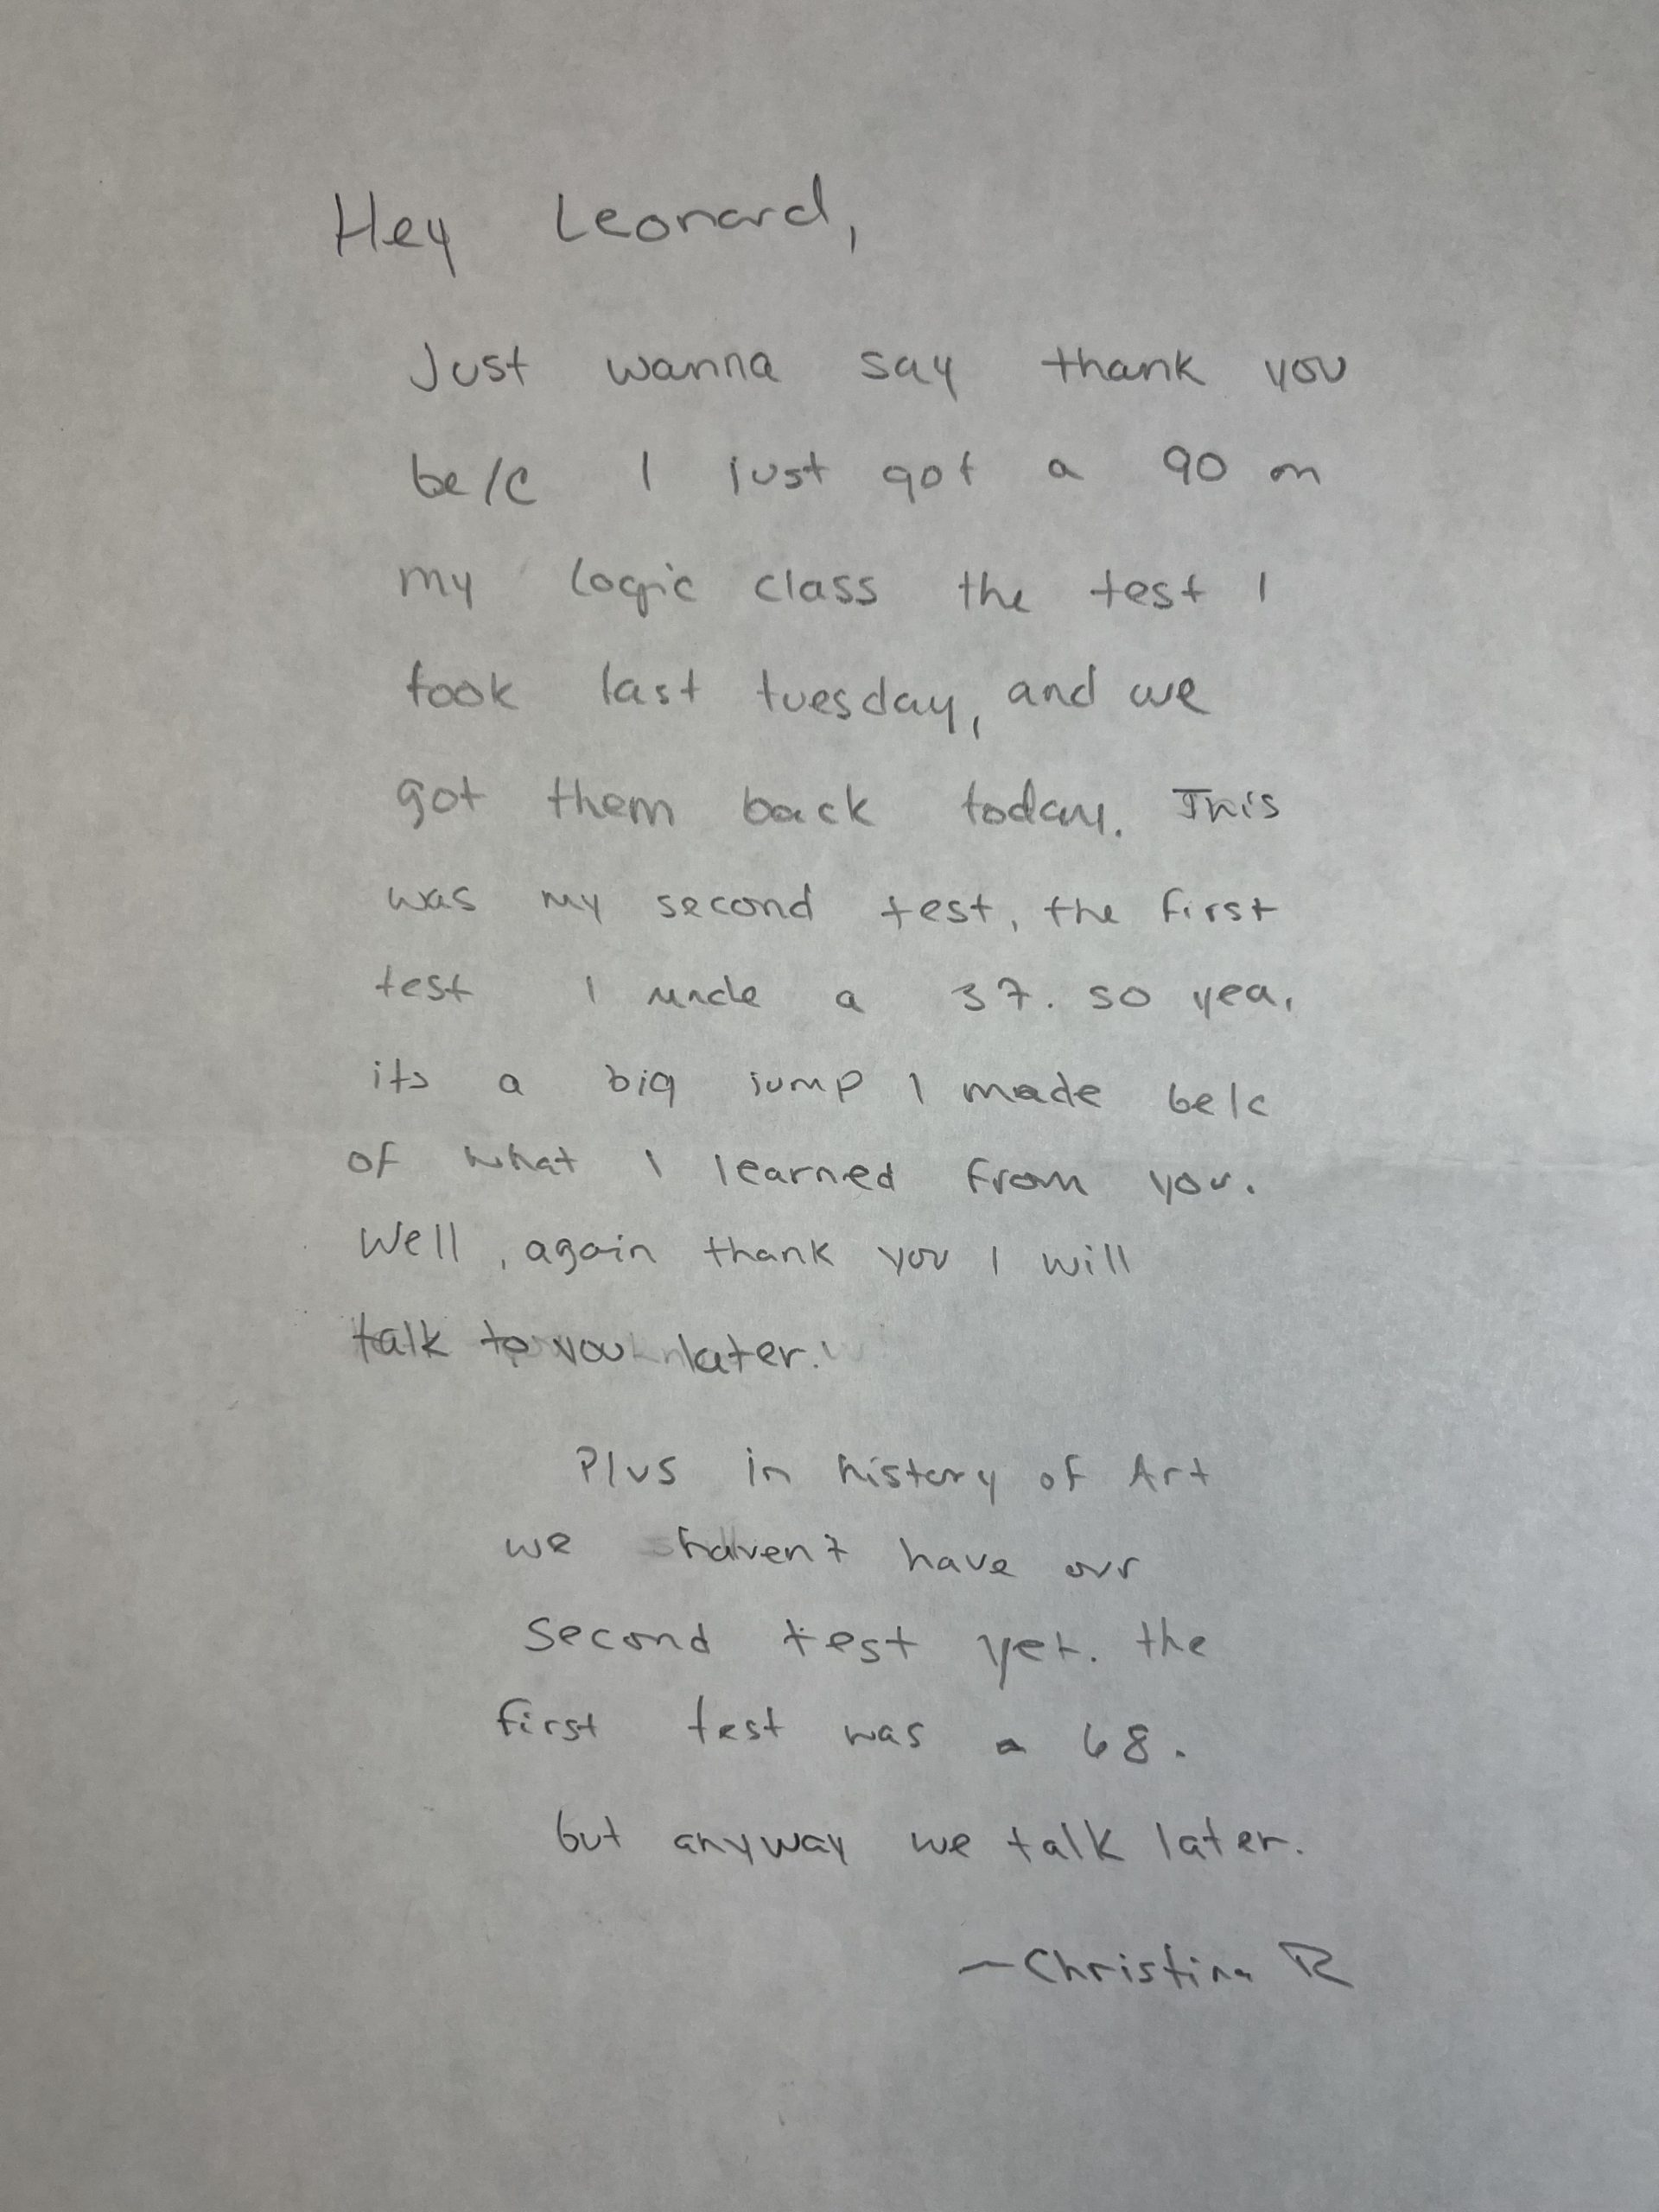 Hey Leonard,
Just wanna say thank you
be/c I just got a 90 on
my logic class the test I
took last tuesday, and we
got them back today. This
was my second test, the first
test I made a 37. so yea,
its a big jump I made be/c
of what I learned from you.
Well, again thank you I will
talk to you later.
Plus in history of Art
we haven't have our
second test yet. the
first test was a 68.
but anyway we talk later.
—Christina R